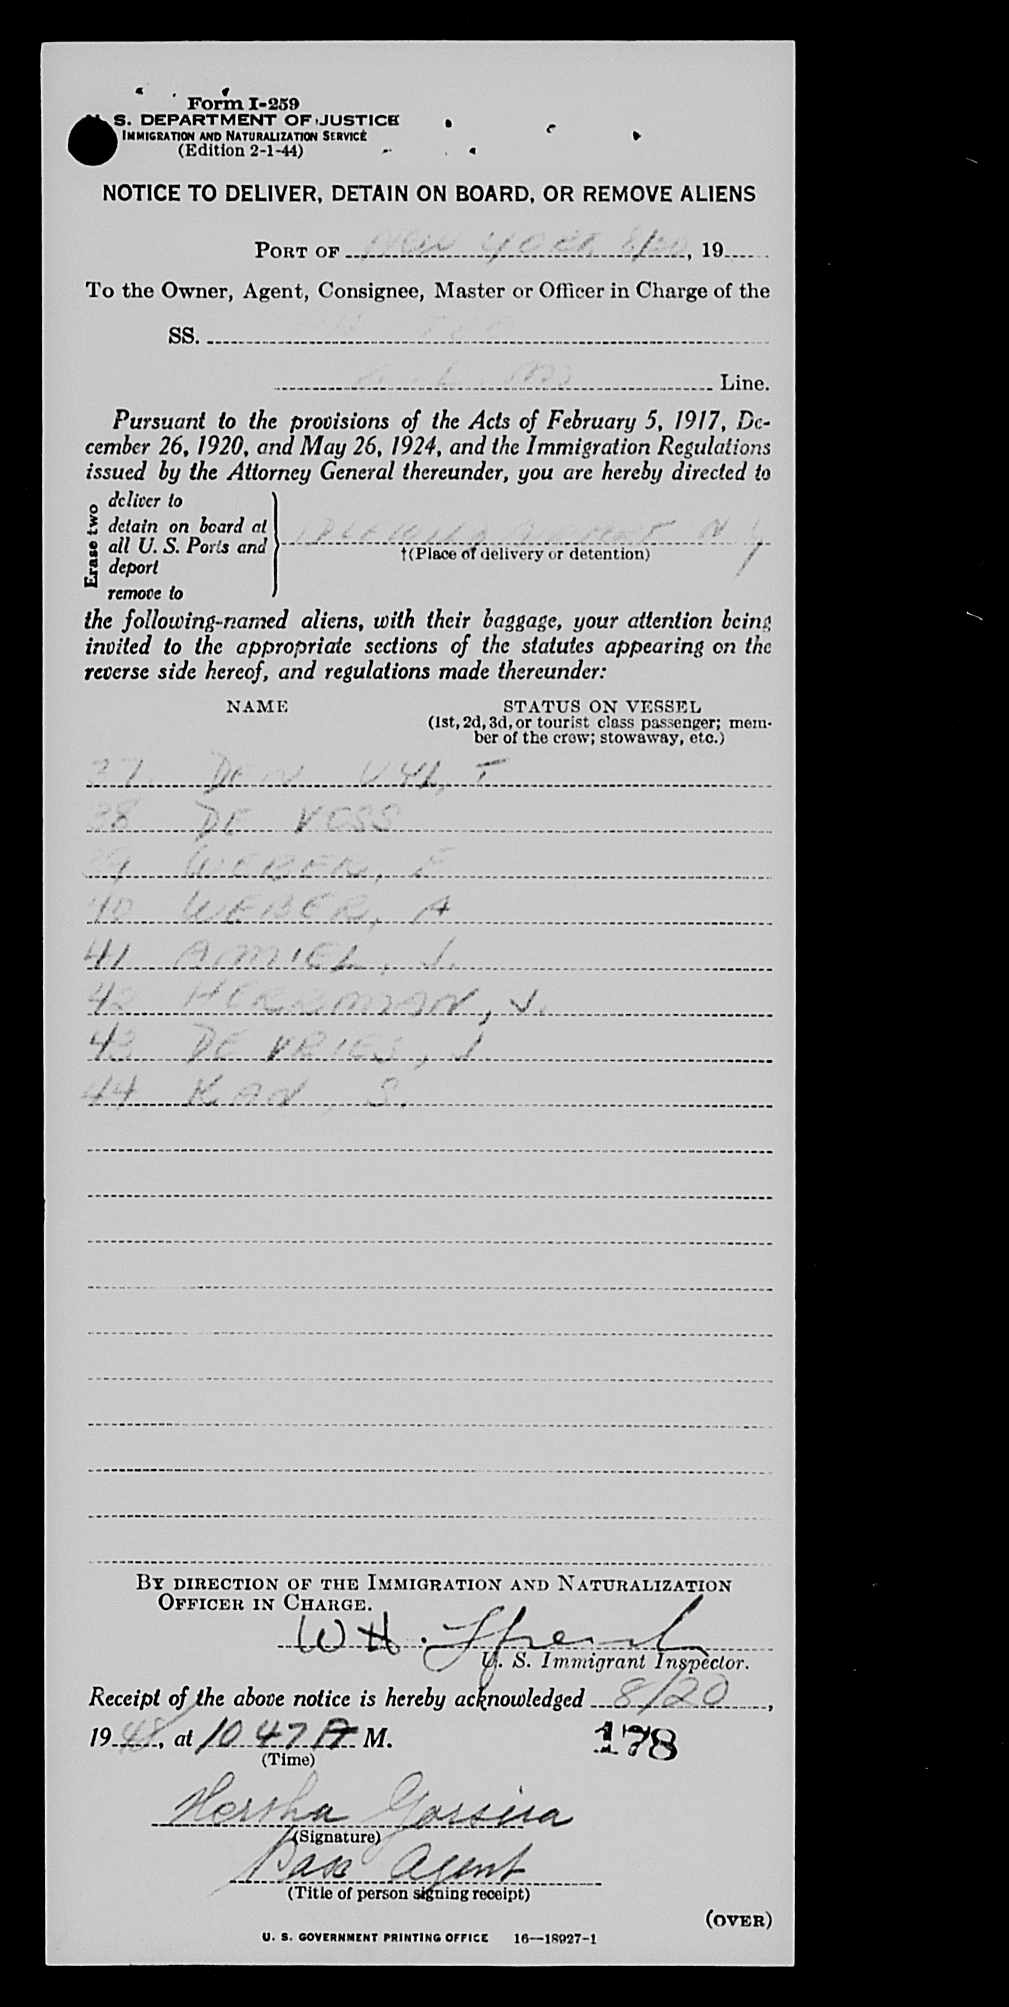 Form I-259
U. S. DEPARTMENT OF JUSTICE
IMMIGRATION AND NATURALIZATION SERVICE
(Edition 2-1-44)
NOTICE TO DELIVER, DETAIN ON BOARD, OR REMOVE ALIENS
PORT OF New York 8/20, 19
To the Owner, Agent, Consignee, Master or Officer in Charge of the
SS.
Line.
Pursuant to the provisions of the Acts of February 5, 1917, De-
cember 26, 1920, and May 26, 1924, and the Immigration Regulations
issued by the Attorney General thereunder, you are hereby directed to
Erase two
deliver to
detain on board at
all U. S. Ports and
deport
remove to
N Y
†(Place of delivery or detention)
the following-named aliens, with their baggage, your attention being
invited to the appropriate sections of the statutes appearing on the
reverse side hereof, and regulations made thereunder:
NAME STATUS ON VESSEL
(1st, 2d, 3d, or tourist class passenger; mem-
ber of the crew; stowaway, etc.)
37 DEN UYL, T
38 DE VOSS
39 WEBER, F
40 WEBER, A
41 AMIEL, J.
42 HERRMAN, J.
43 DE VRIES, J
44 KAN, S.
BY DIRECTION OF THE IMMIGRATION AND NATURALIZATION
OFFICER IN CHARGE.
W H.
U. S. Immigrant Inspector.
Receipt of the above notice is hereby acknowledged 8/20,
19 48, at 10 47 A M. 178
(Time)
Hersha Gorsira
(Signature)
Pass Agent
(Title of person signing receipt)
(OVER)
U. S. GOVERNMENT PRINTING OFFICE 16—18927-1